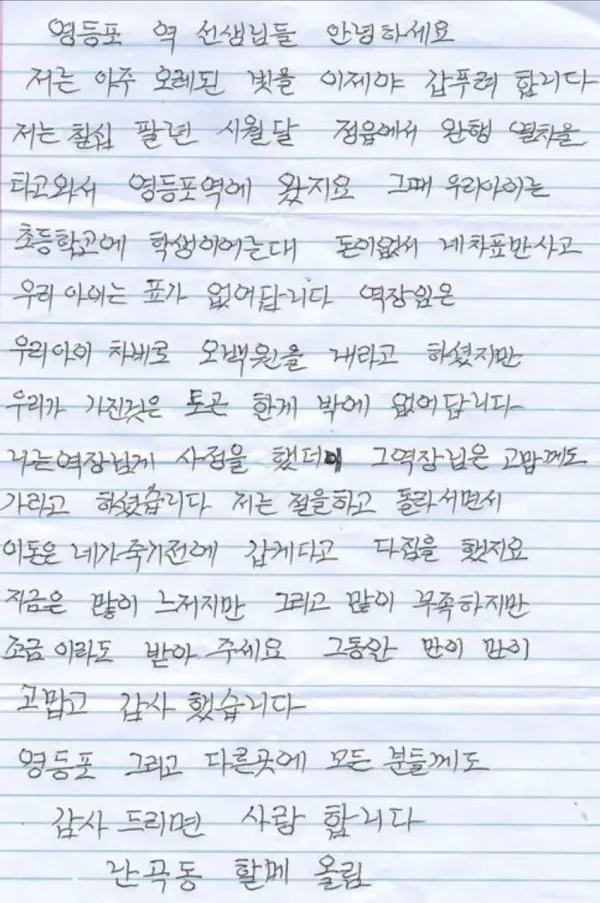 영등포 역 선생님들 안녕하세요
저는 아주 오레된 빛을 이제야 갑푸려 합니다
저는 칠십 팔년 시월달 정읍에서 완행 열차을
타고와서 영등포역에 왔지요 그때 우리아이는
초등학고에 학생이어는대 돈이없서 네차표만사고
우리 아이는 표가 없어답니다 역장임은
우리아이 차비로 오백원을 내라고 하셨지만
우리가 가진것은 토곤 한게 밖에 없어답니다
나는역장님게 사정을 했더니 그역장님은 고맙께도
가라고 하셨습니다 저는 절을하고 돌라서면서
이돈은 네가죽기전에 갑게다고 다짐을 했지요
지금은 많이 느저지만 그리고 많이 부족하지만
조금이라도 받아 주세요 그동안 만이 만이
고맙고 감사 했습니다
영등포 그리고 다른곳에 모든 분들께도
감사 드리면 사랑 합니다
난곡동 할메 올림